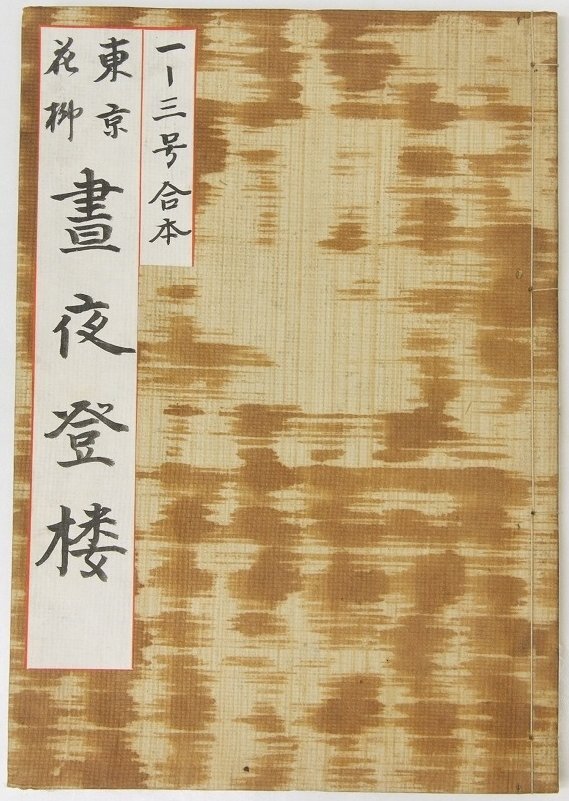 一―三号合本
東京
花柳
晝夜登楼